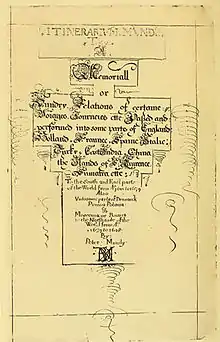 ITINERARIUM MUNDI
Memoriall
or
Sundry Relations of certaine
Voiages Journeies ettc Passed and
performed into some parts of England
Holland France Spaine Italie
Turky East India China
the Ilands of St Laurence
Sumatra ettc
To the South and East parts
of the World from
Also
Various parts of Denmarck
Prussia Polonia
Muscovia or Russia
the Northside of the
World from
1639 to 1648
By
Peter Mundy